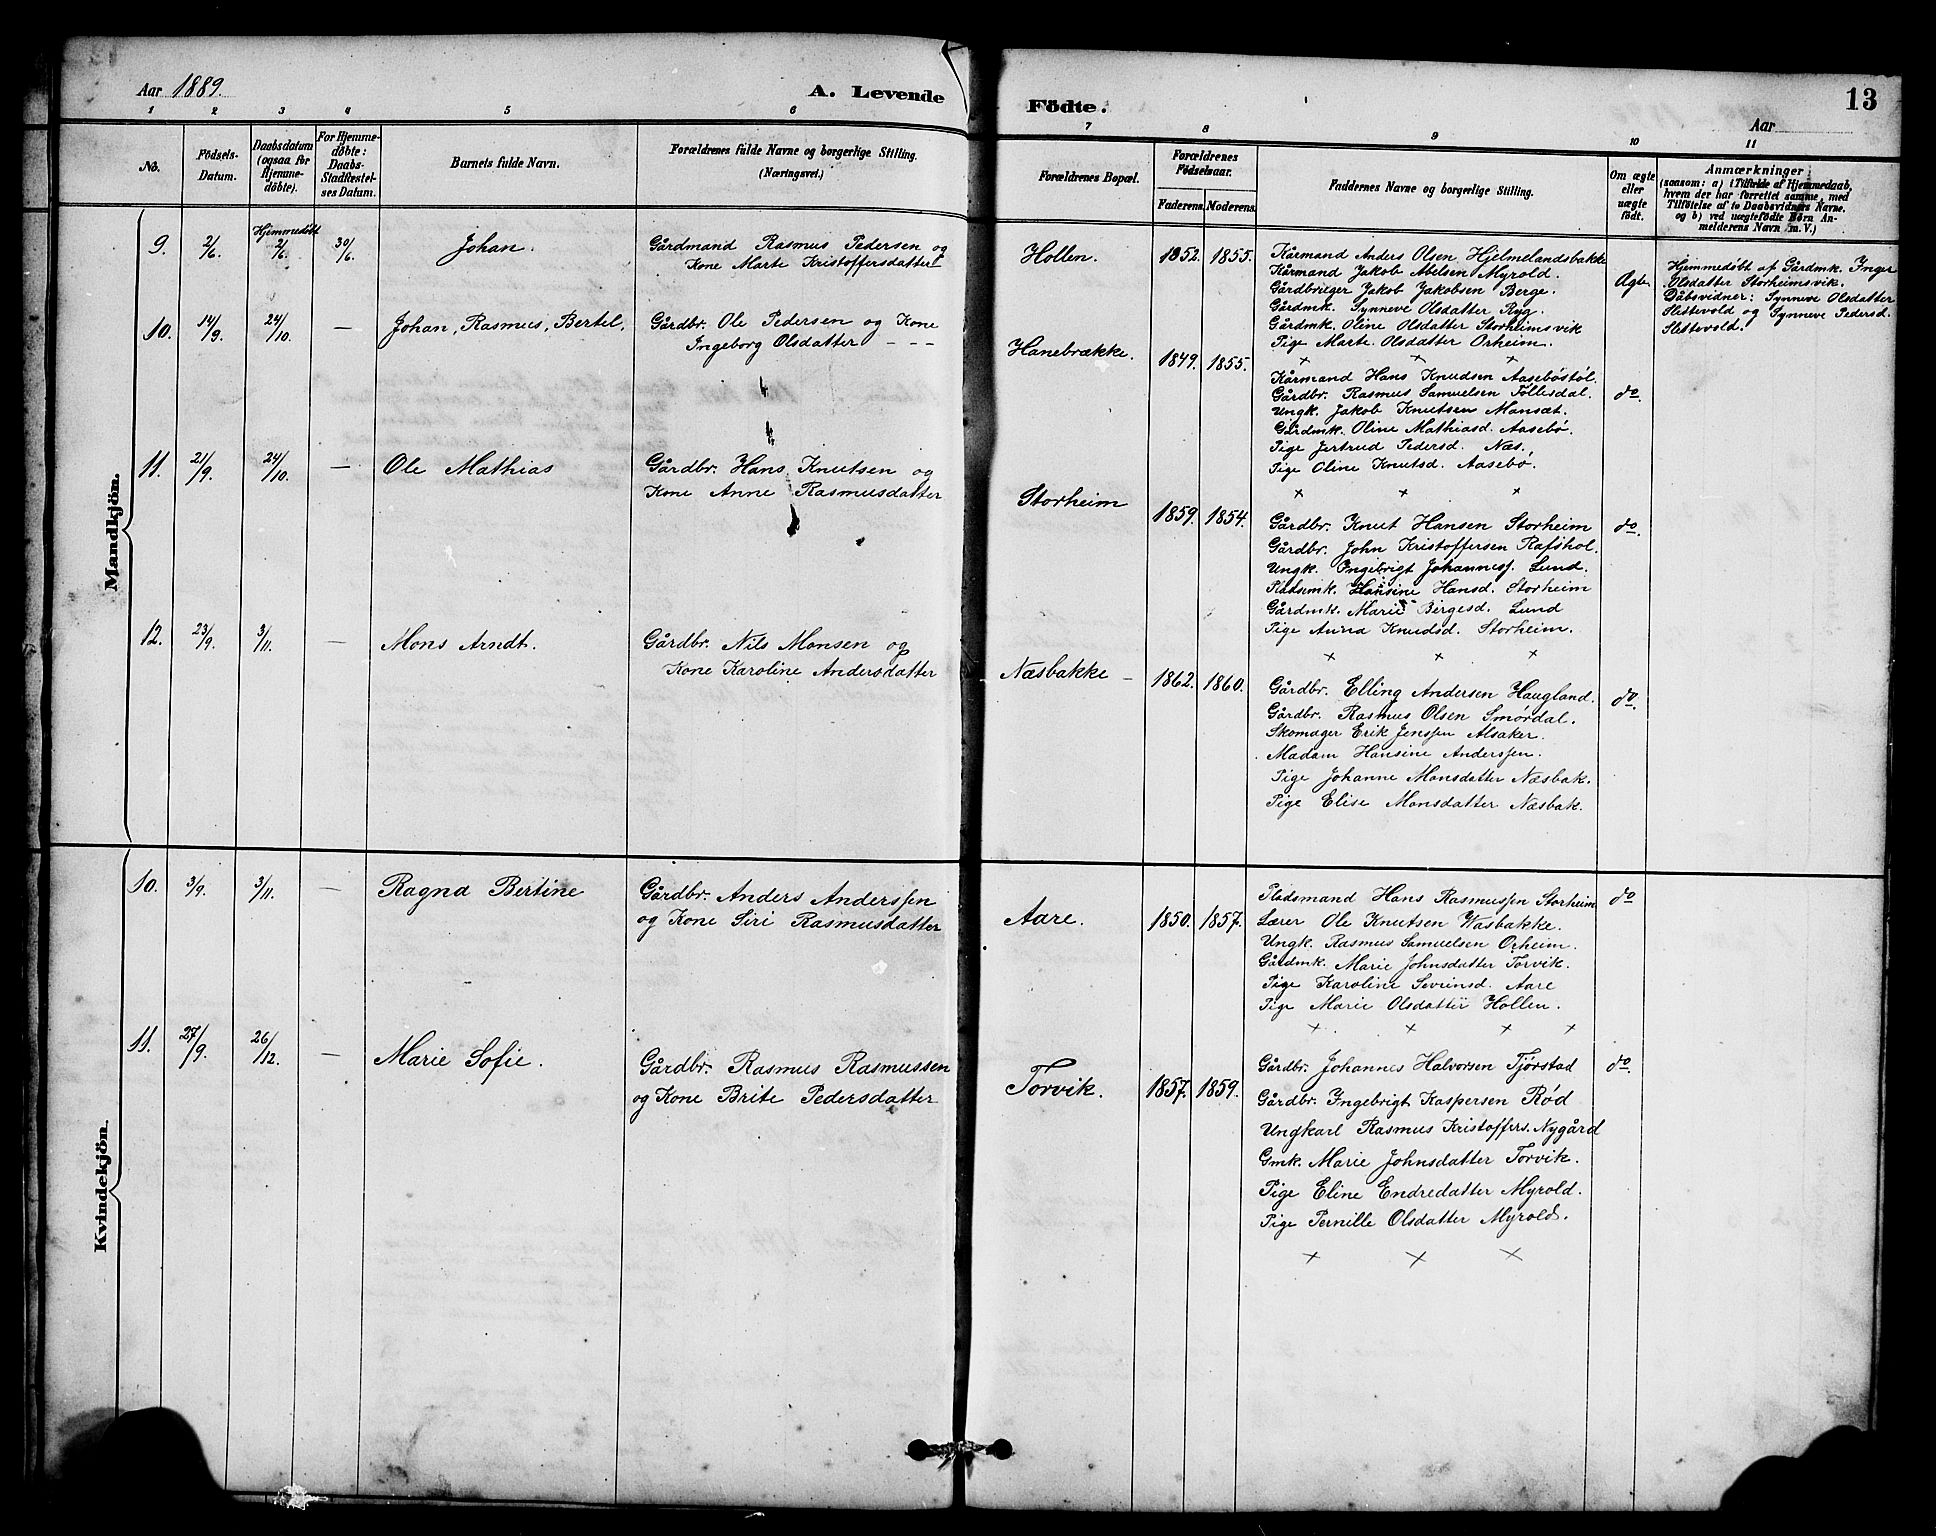 Aar 1889.
A. Levende
Födte.
Aar
13
1 2 3 4 5 6
7 8 9 10 11
No.
Födsels-
Datum.
Daabsdatum
(ogsaa for
Hjemme-
döbte).
For Hjemme-
döbte:
Daabs-
Stadfæstel-
ses Datum.
Barnets fulde Navn.
Forældrenes fulde Navne og borgerlige Stilling.
(Næringsvei.)
Forældrenes Bopæl.
Forældrenes
Födselsaar.
Faderens. Moderens.
Faddernes Navne og borgerlige Stilling.
Om ægte
eller
uægte
födt.
Anmærkninger
(saasom: a) i Tilfælde af Hjemmedaab,
hvem der har forrettet samme, med
Tilföielse af to Daabsvidners Navne,
og b) ved uægtefödte Börn An-
melderens Navn m. V.)
Mandkjön.
9. 2/6. Hjemmedøbt 2/6. 30/6. Johan. Gårdmand Rasmus Pedersen og
Kone Marte Kristoffersdatter
Hollen. 1852. 1855.
Kårmand Anders Olsen Hjelmelandsbakke
Kårmand Jakob Abelsen Myrold.
Gårdbruger Jakob Jakobsen Berge.
Gårdmk. Synneve Olsdatter Ryg.
Gårdmk. Oline Olsdatter Storheimsvik
Pige Marte Olsdatter Orheim.
x x x
Ægte
Hjemmedøbt af Gårdmk. Inger
Olsdatter Storheimsvik.
Dåbsvidner: Synneve Olsdatter
Slettevold og Synneve Pedersd.
Slettevold.
10. 14/9. 24/10. — Johan, Rasmus, Bertel. Gårdbr. Ole Pedersen og Kone
Ingeborg Olsdatter - - -
Hanebrække. 1849. 1855.
Kårmand Hans Knudsen Aasebøstøl.
Gårdbr. Rasmus Samuelsen Føllesdal.
Ungk. Jakob Knutsen Monsæt.
Gårdmk. Oline Mathiasd. Aasebø.
Pige Jertrud Pedersd. Næs.
Pige Oline Knutsd. Aasebø.
x x x
do.
11. 21/9. 24/10. — Ole Mathias Gårdbr. Hans Knutsen og
Kone Anne Rasmusdatter
Storheim 1859. 1854.
Gårdbr. Knut Hansen Storheim
Gårdbr. John Kristoffersen Rafshol.
Ungk. Ingebrigt Johanness. Lund.
Pladsemk. Hansine Hansd. Storheim
Gårdmk. Marie Birgesd. Lund
Pige Anna Knudsd. Storheim.
x x x
do.
12. 23/9. 3/11. — Mons Arndt. Gårdbr. Nils Monsen og
Kone Karoline Andersdatter
Næsbakke – 1862. 1860.
Gårdbr. Elling Andersen Haugland.
Gårdbr. Rasmus Olsen Smørdal.
Skomager Erik Jenssen Alsaker.
Madam Hansine Anderssen.
Pige Johanne Monsdatter Næsbak.
Pige Elise Monsdatter Næsbak.
do.
Kvindekjön.
10. 3/9. 3/11. — Ragna Bertine Gårdbr. Anders Anderssen
og Kone Siri Rasmusdatter
Aare. 1850. 1857.
Pladsmand Hans Rasmussen Storheim
Lærer Ole Knutsen Wasbakke.
Ungk. Rasmus Samuelsen Orheim.
Gårdmk. Marie Johnsdatter Torvik.
Pige Karoline Sevrinsd. Aare
Pige Marie Olsdatter Hollen.
x x x x
do
11. 27/9. 26/12. — Marie Sofie. Gårdbr. Rasmus Rasmussen
og Kone Brite Pedersdatter
Torvik. 1857. 1859.
Gårdbr. Johannes Halvorsen Tjørstad
Gårdbr. Ingebrigt Kaspersen Rød
Ungkarl Rasmus Kristoffers. Nygård
Gmk. Marie Johnsdatter Torvik.
Pige Eline Endredatter Myrold.
Pige Pernille Olsdatter Myrold.
x x x
do.